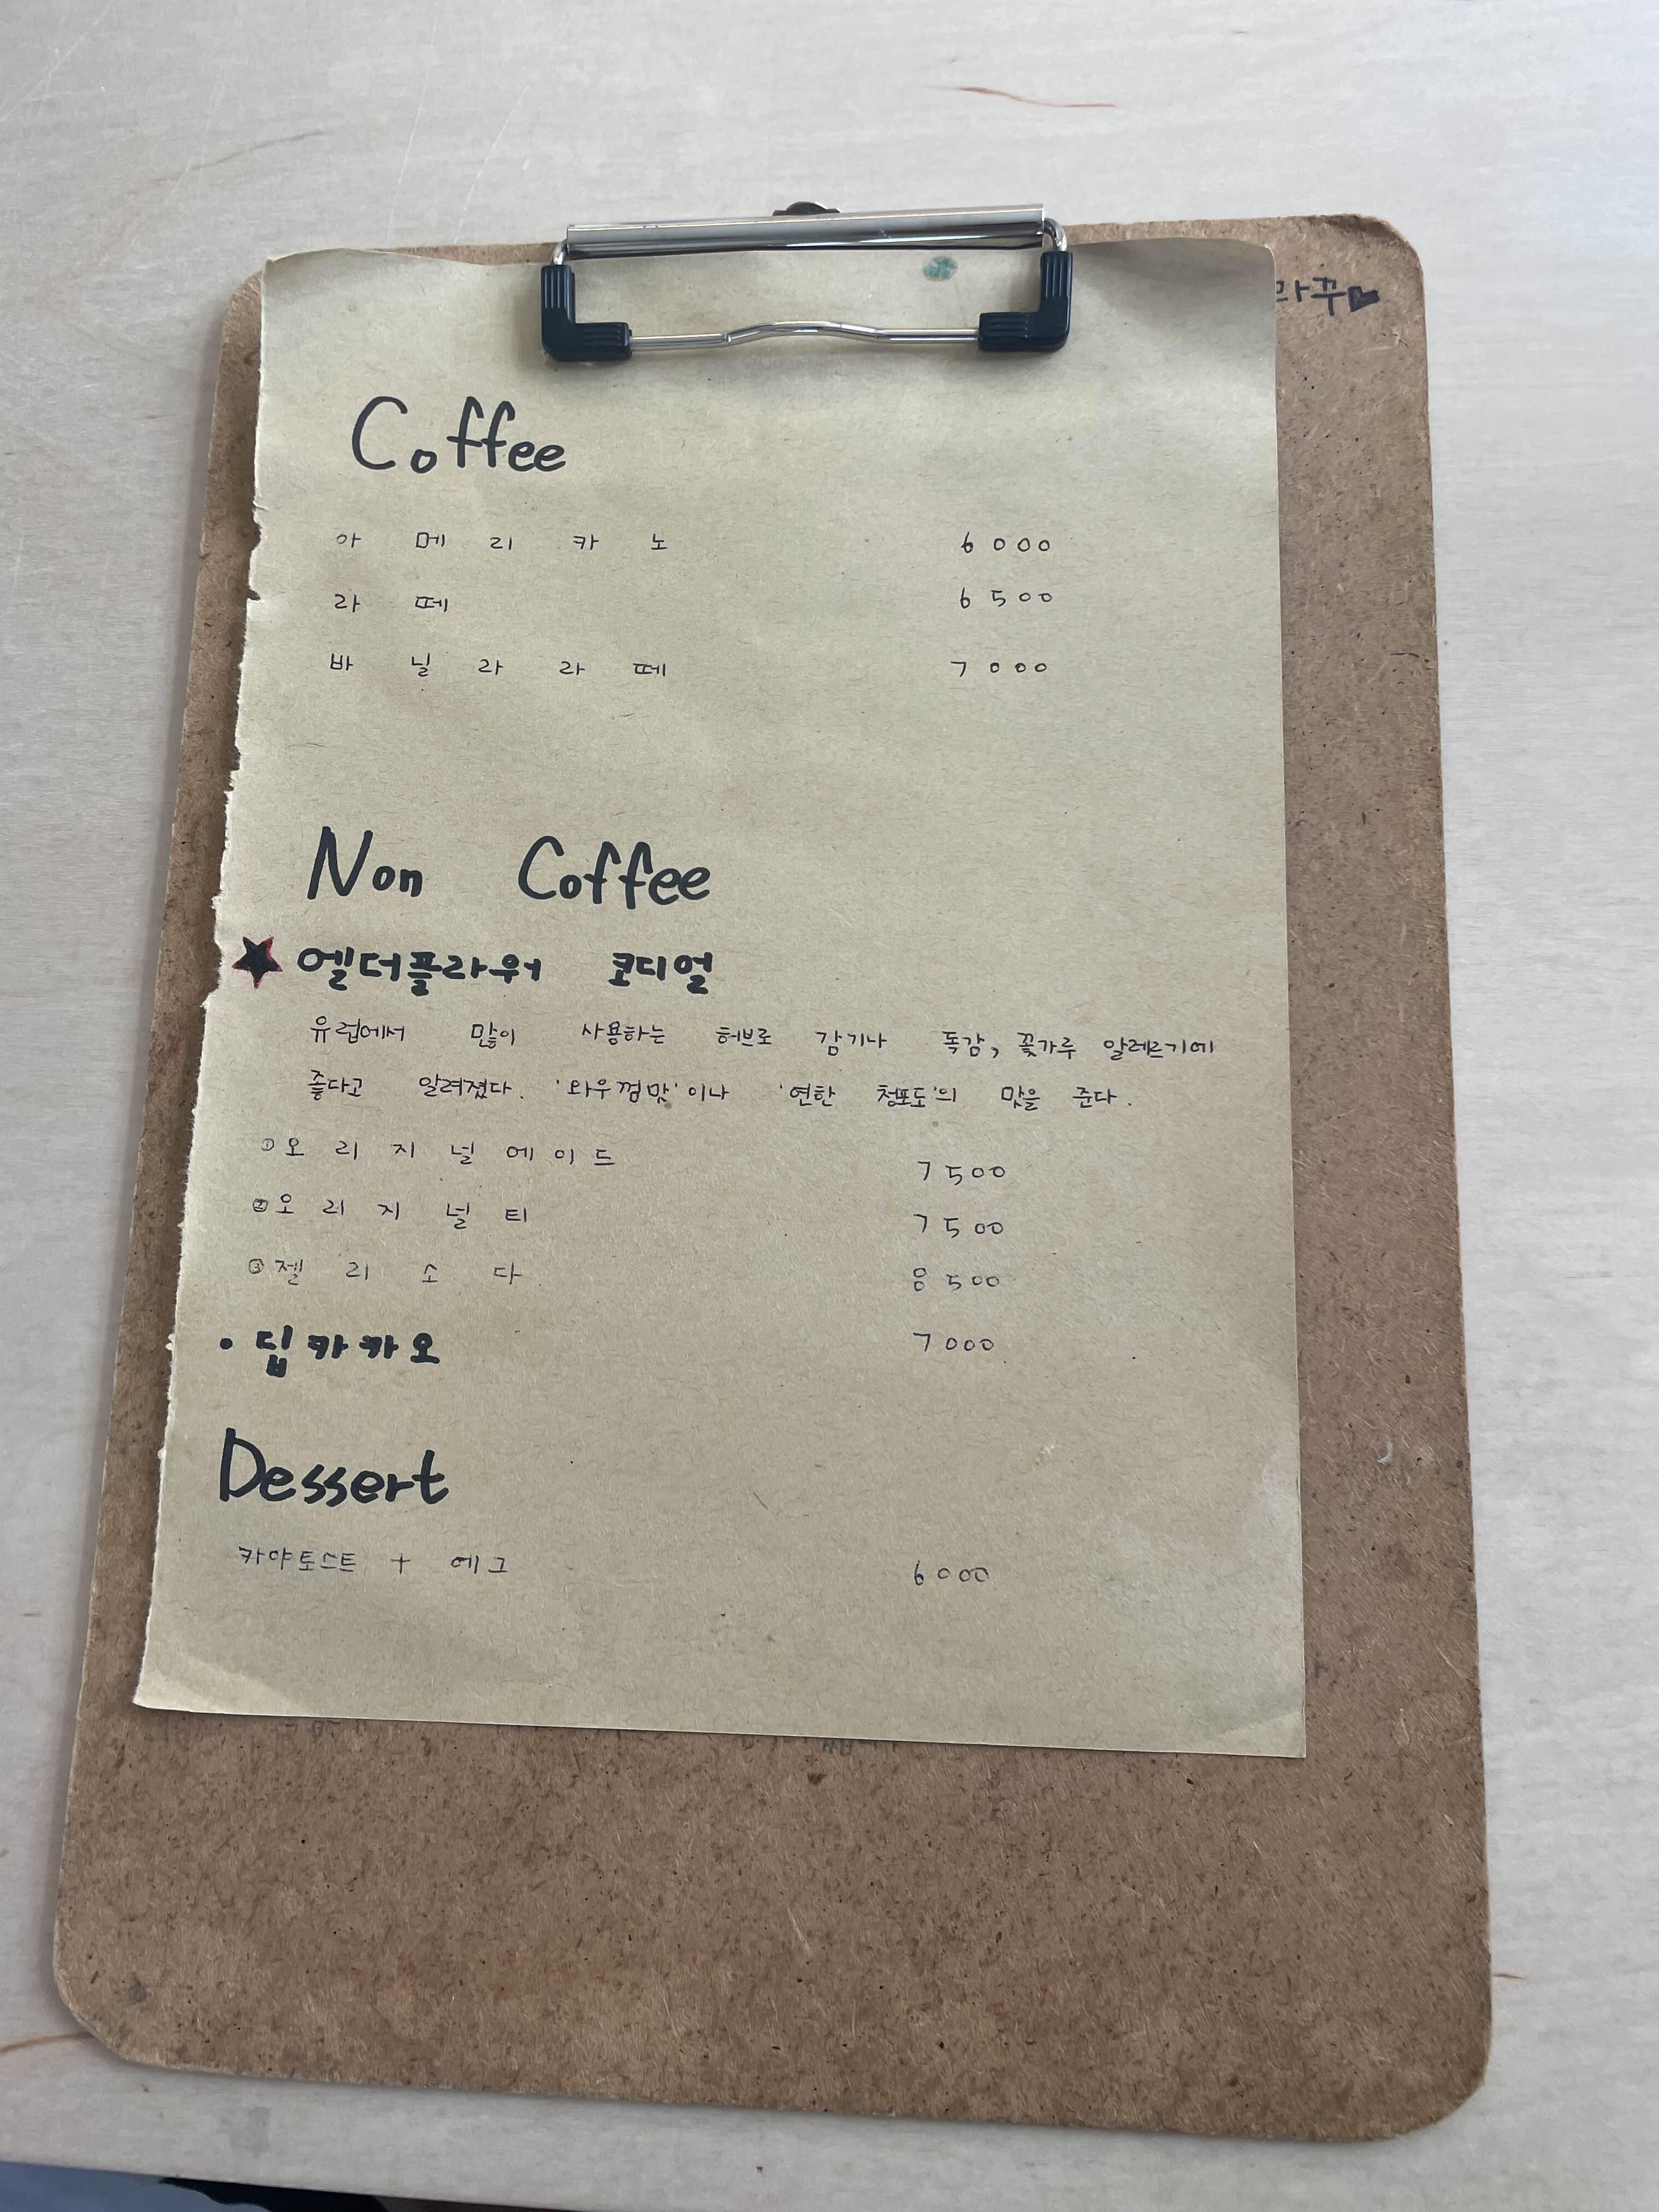 라꾸
Coffee
아메리카노 6000
라떼 6500
바닐라라떼 7000
Non Coffee
★엘더플라워 코디얼
유럽에서 많이 사용하는 허브로 감기나 독감, 꽃가루 알레르기에
좋다고 알려졌다. '와우껌맛'이나 '연한 청포도'의 맛을 준다.
①오리지널에이드 7500
②오리지널티 7500
③젤리소다 8500
• 딥카카오 7000
Dessert
카야토스트 + 에그 6000